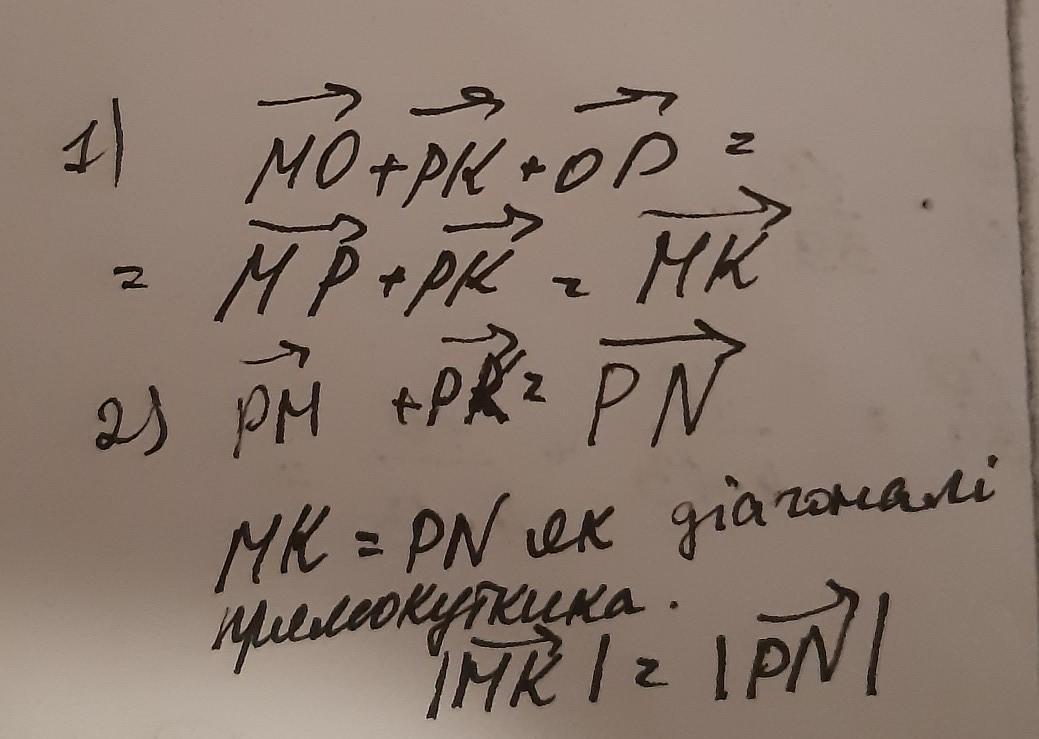 1) MO + PK + OP =
= MP + PK = MK
2) PM + PK = PN
MK = PN як діагоналі
прямокутника.
|MK| = |PN|